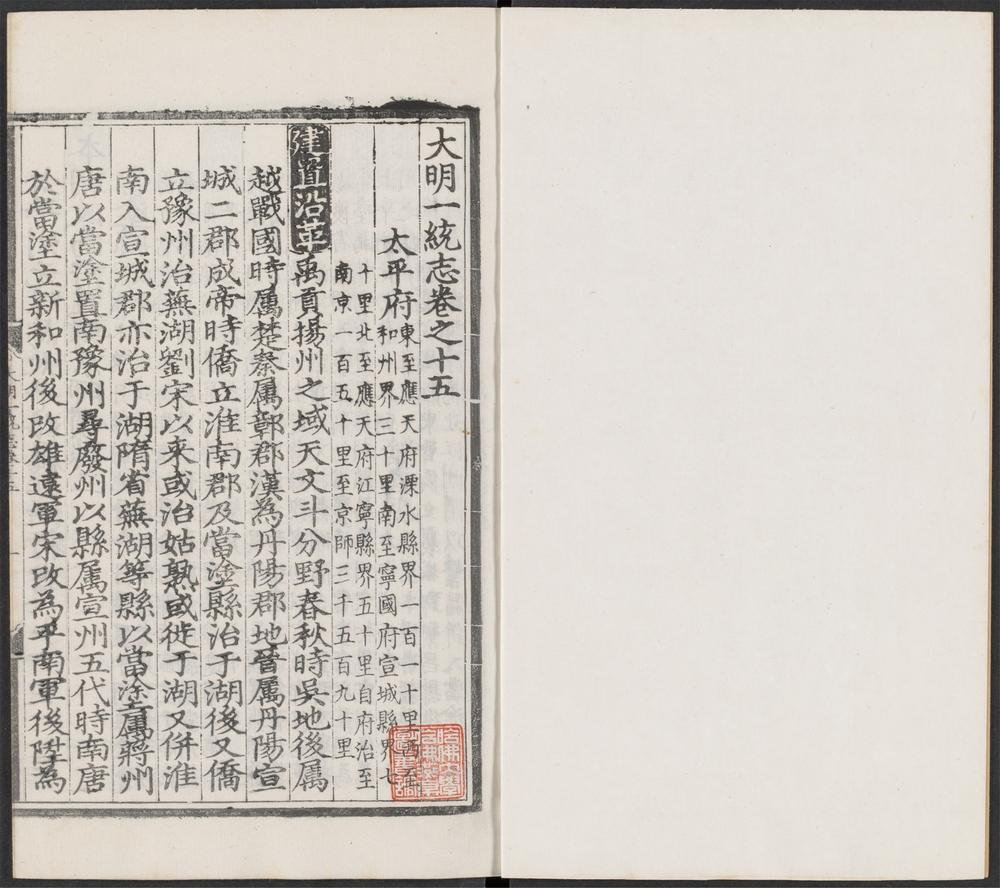 大明一統志卷之十五
太平府東至應天府溧水縣界一百一十里西至
和州界三十里南至寧國府宣城縣界七
十里北至應天府江寧縣界五十里自府治至
南京一百五十里至京師三千五百九十里
建置沿革禹貢揚州之域天文斗分野春秋時吳地後属
越戰國時属楚秦属鄣郡漢為丹陽郡地晉属丹陽宣
城二郡成帝時僑立淮南郡及當塗縣治于湖後又僑
立豫州治蕪湖劉宋以来或治姑熟或徙于湖又併淮
南入宣城郡亦治于湖隋省蕪湖等縣以當塗属蔣州
唐以當塗置南豫州尋廢州以縣属宣州五代時南唐
於當塗立新和州後改雄遠軍宋改為平南軍後陞為